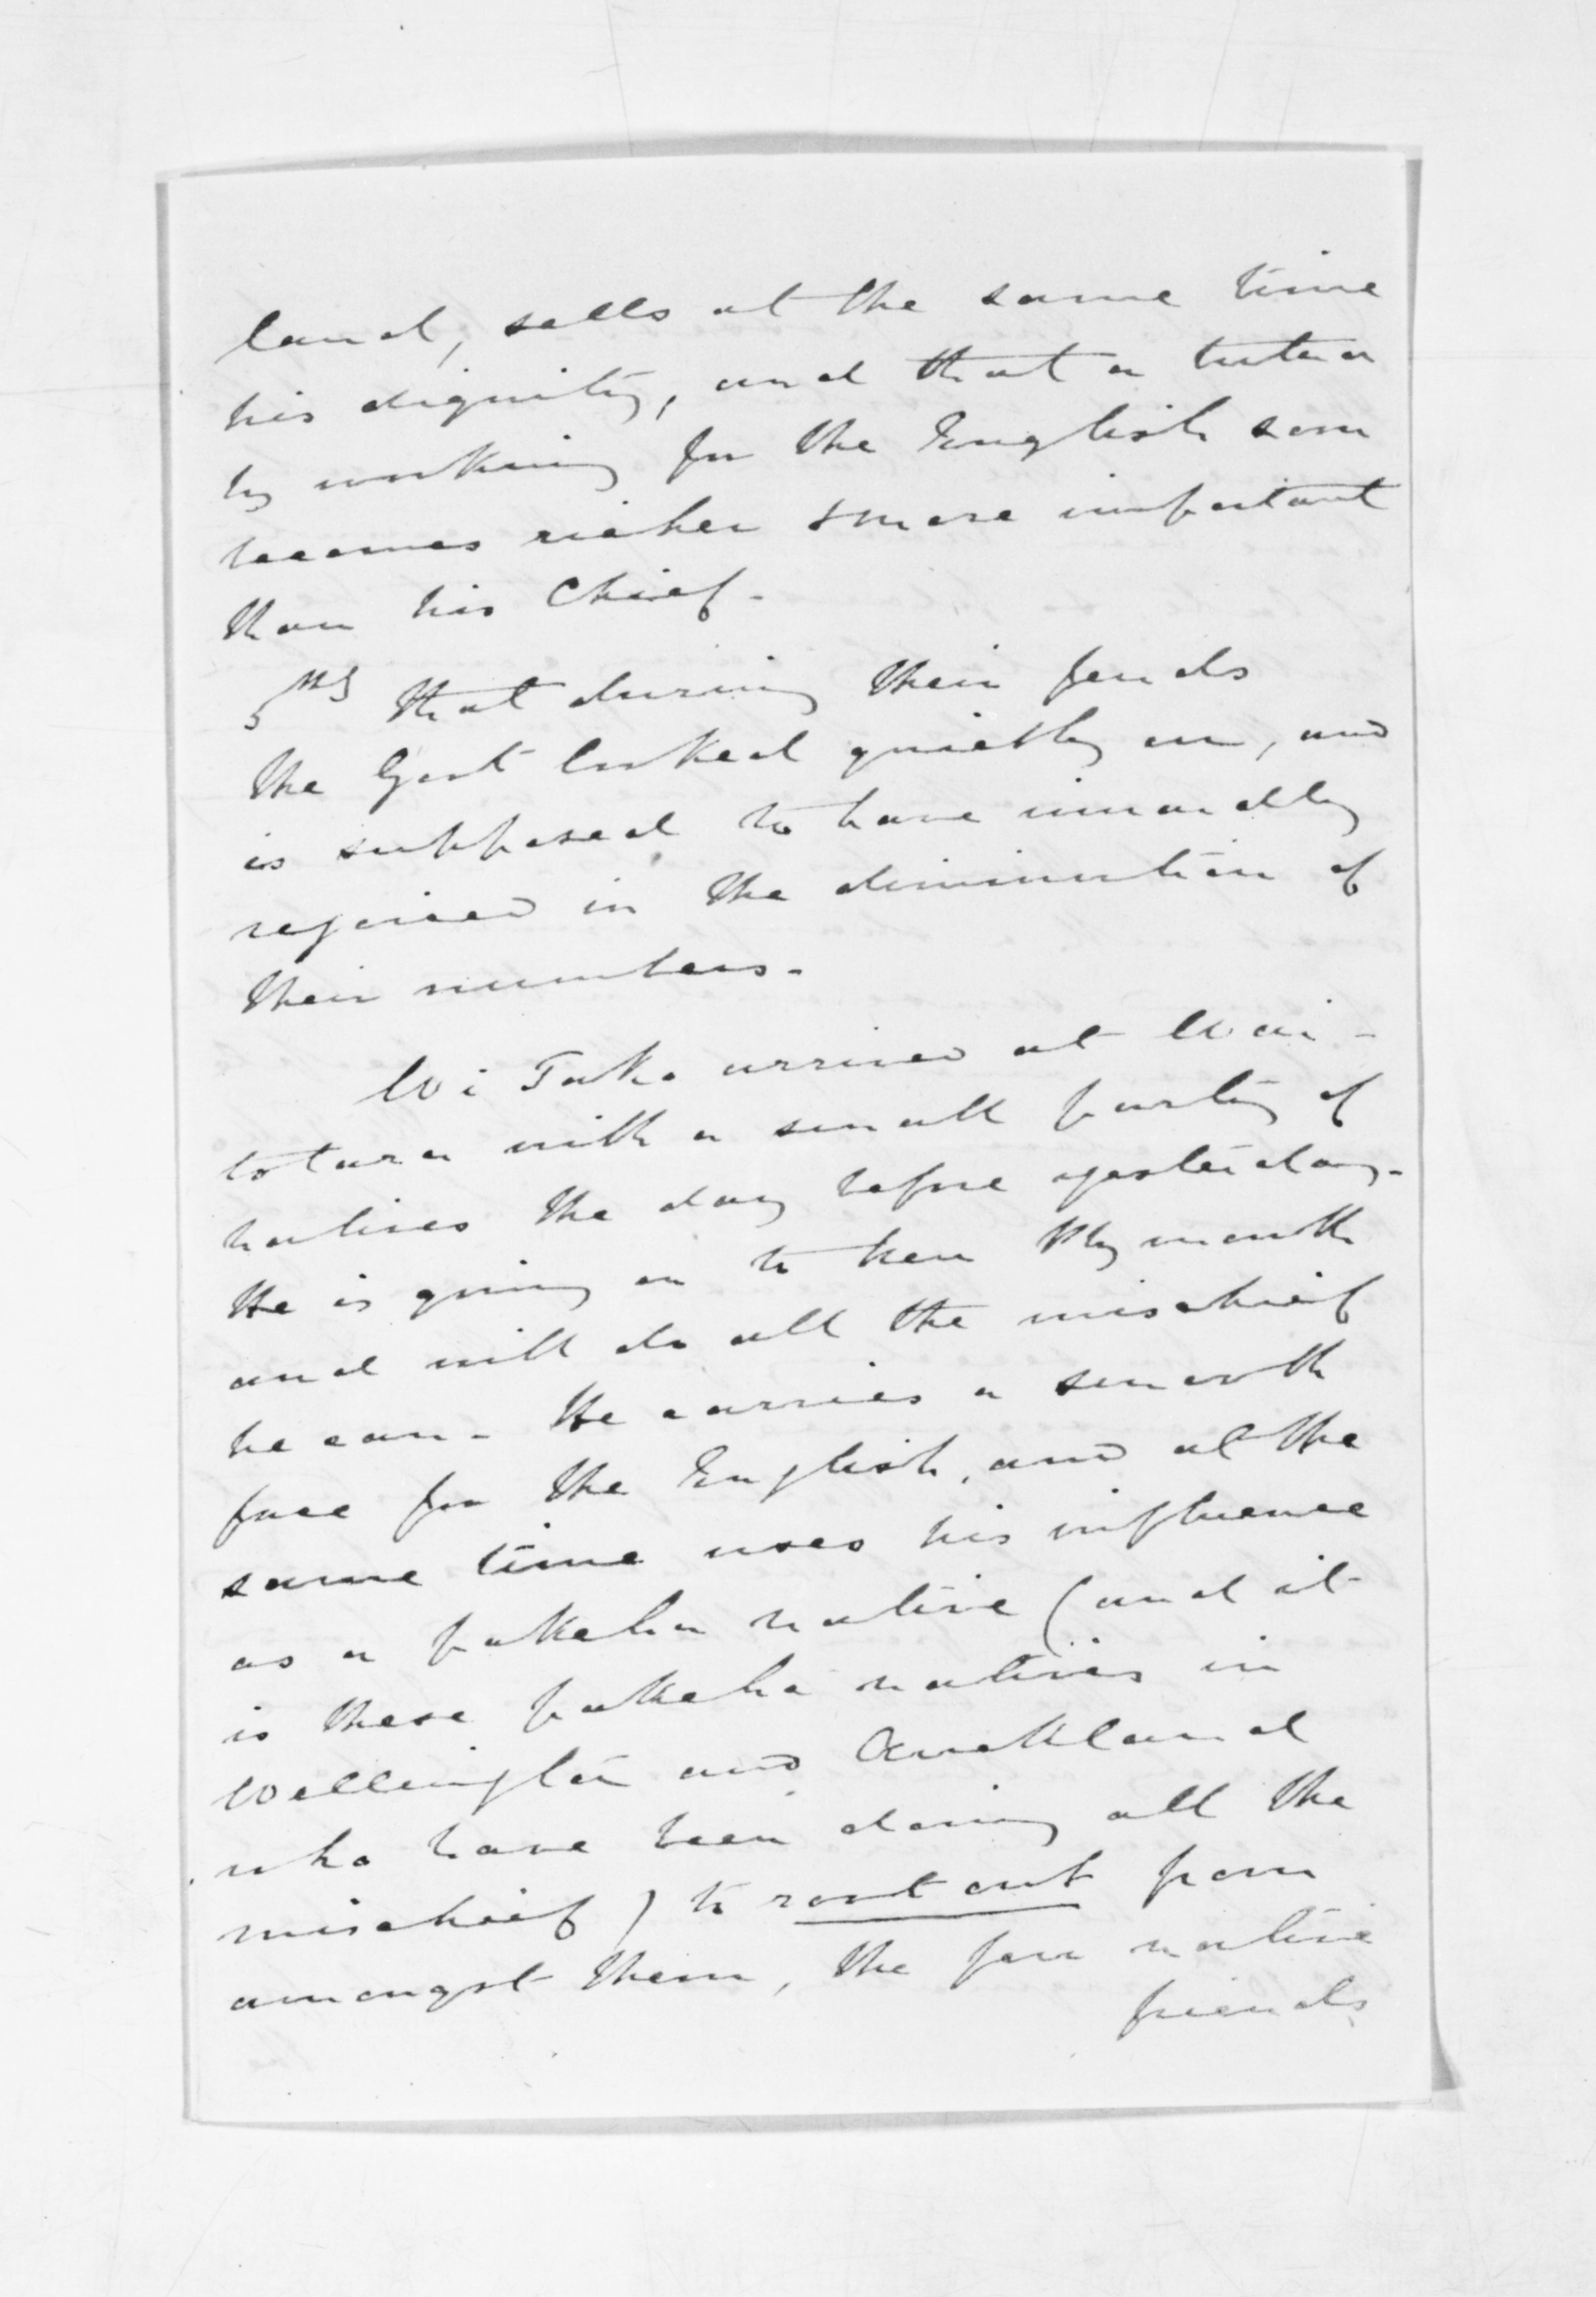 land, sells at the same time
his dignity, and that a tutua
by working for the English soon
becomes richer & more important
than his Chief.
5thly that during their feuds
the Govt looked quietly on, and
is supposed to have inwardly
rejoiced in the diminution of
their numbers.
Wi Tako arrived at Wai-
totara with a small party of
natives the day before yesterday.
He is going on to New Plymouth
and will do all the mischief
he can. He carries a smooth
face for the English, and at the
same time uses his influence
as a pakeha native (and it
is these pakeha natives in
Wellington and Auckland
who have been doing all the
mischief) to root out from
amongst them, the few native
friends